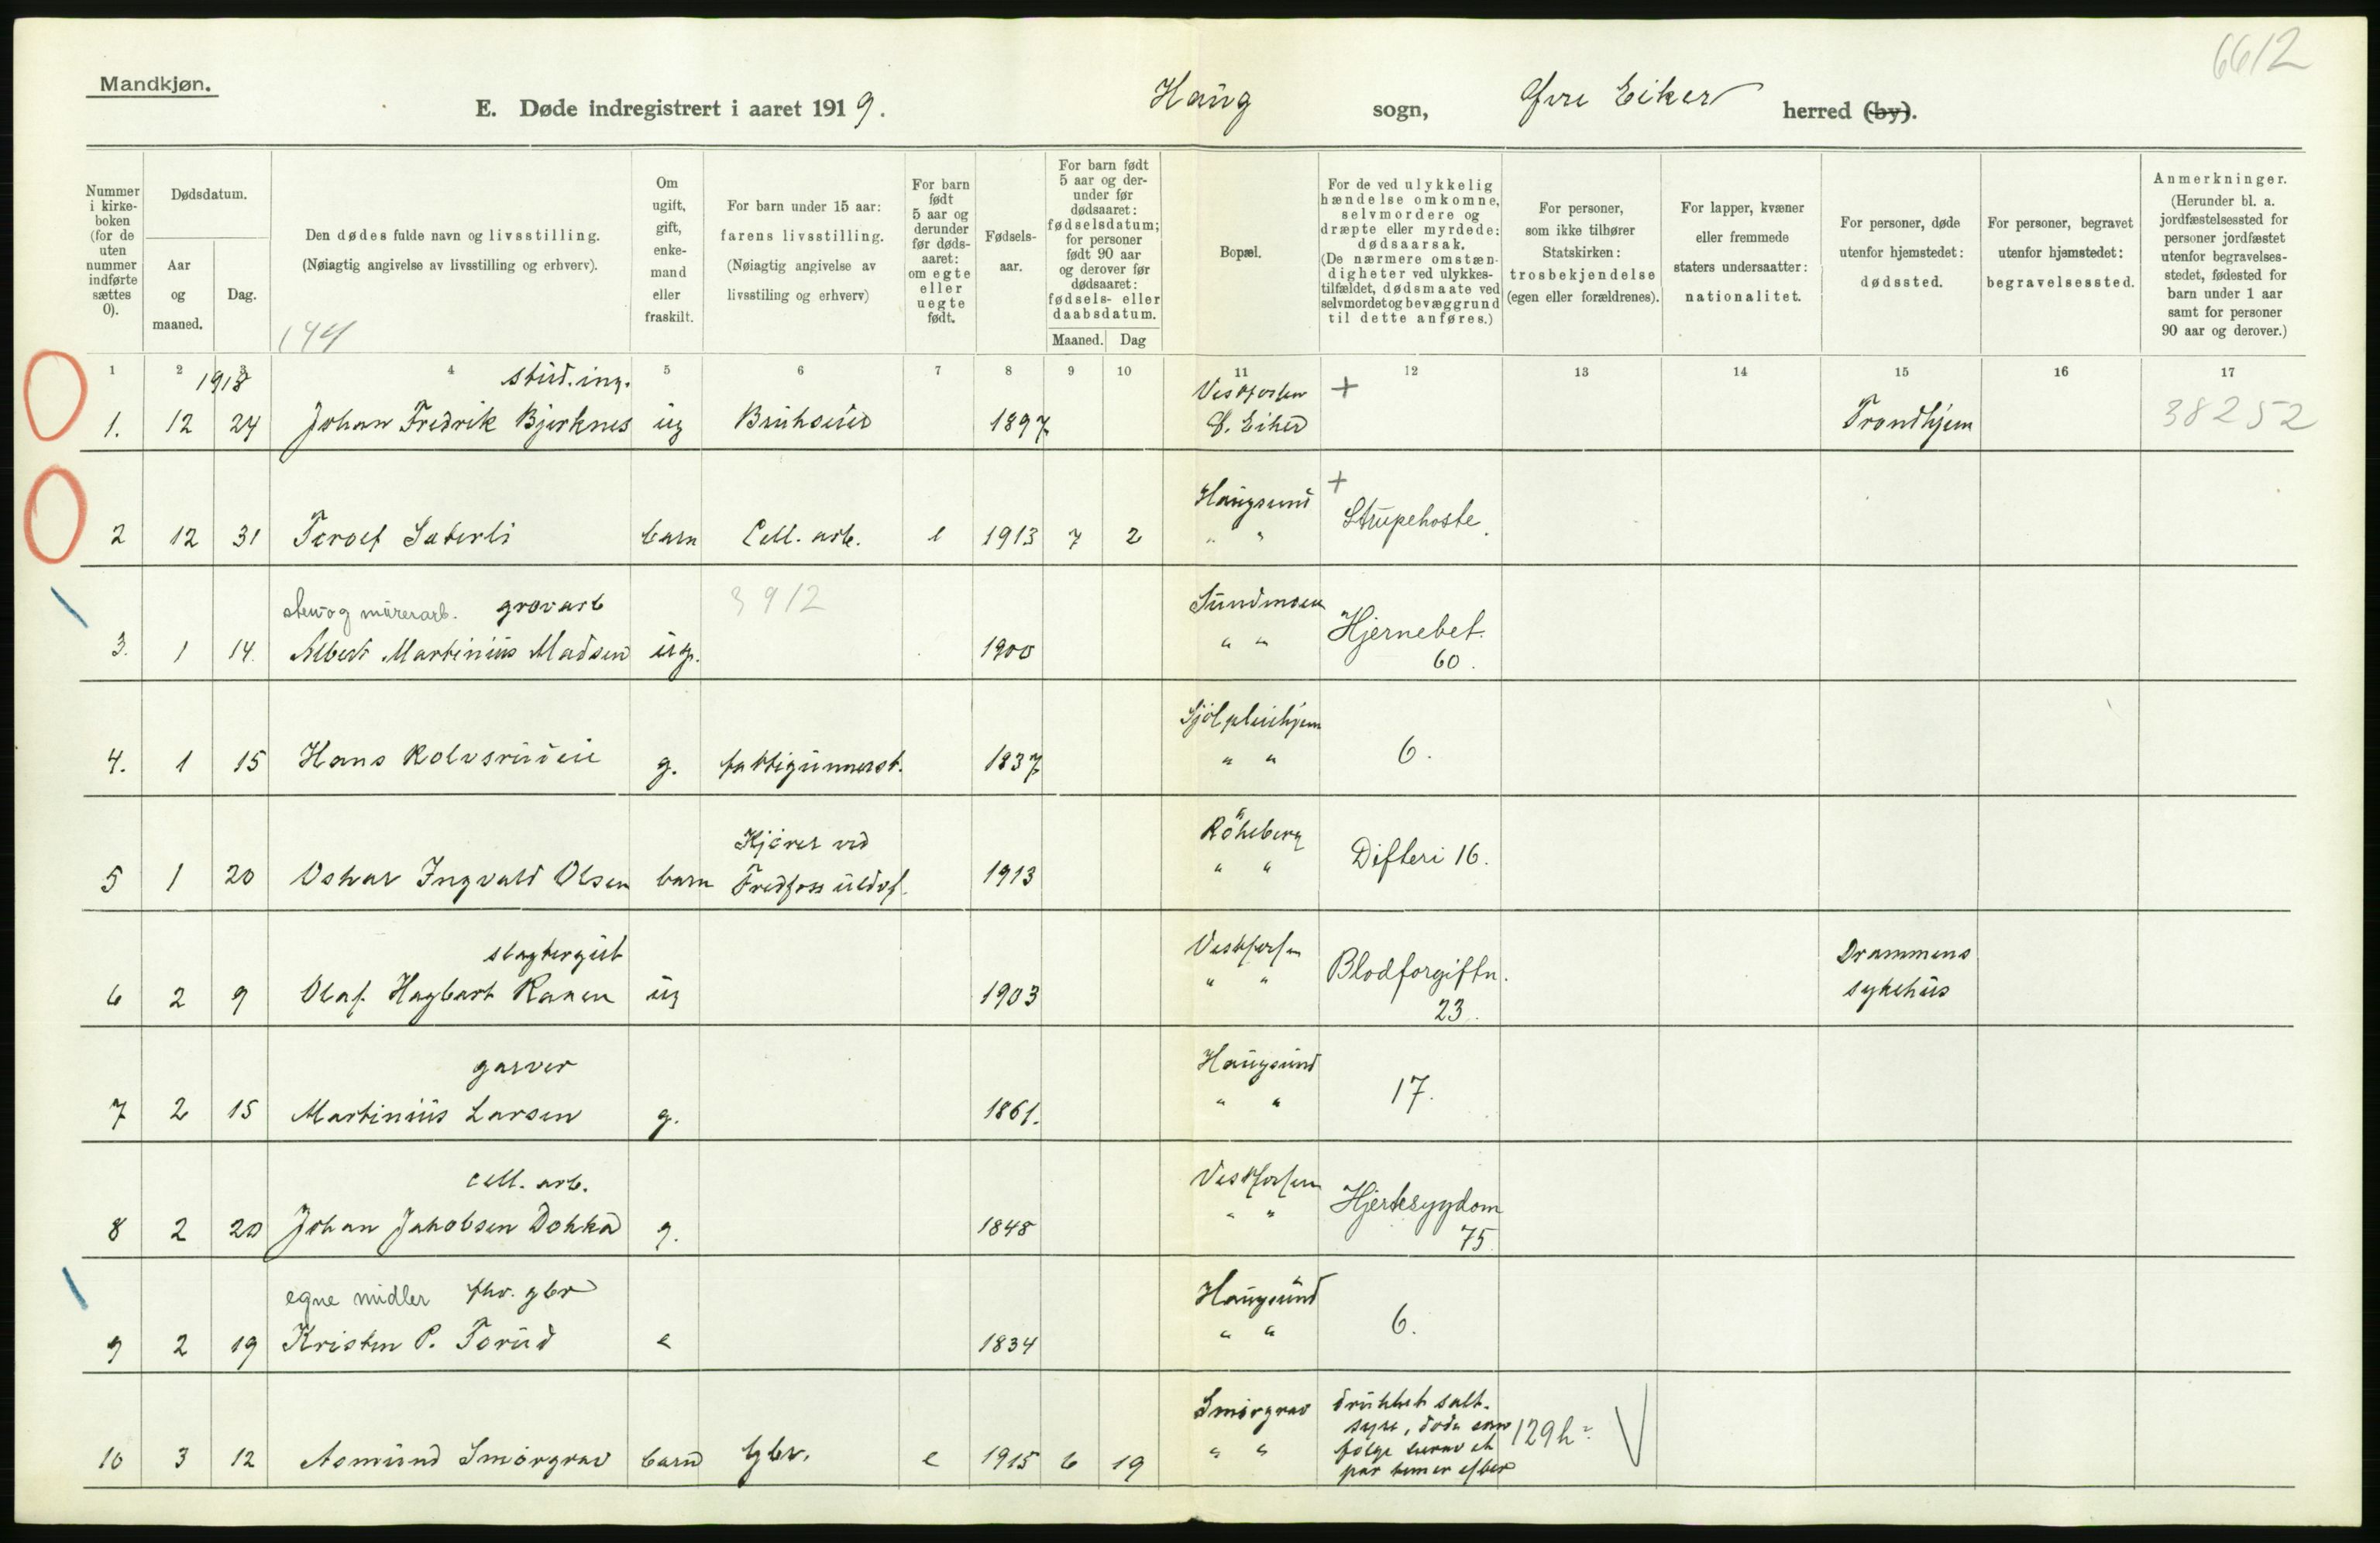 6612
Mandkjøn.
E. Døde indregistrert i aaret 1919. Haug sogn, Øvre Eiker herred (by).
Nummer i kirkeboken (for de uten nummer indførte sættes 0).
Dødsdatum.
Aar og maaned.
Dag.
Den dødes fulde navn og livsstilling.
(Nøiagtig angivelse av livsstilling og erhverv).
144
Om ugift, gift, enkemand eller fraskilt.
For barn under 15 aar: farens livsstilling.
(Nøiagtig angivelse av livsstiling og erhverv)
For barn født 5 aar og derunder før dødsaaret: om egte eller uegte født.
Fødselsaar.
For barn født 5 aar og derunder før dødsaaret: fødselsdatum; for personer født 90 aar og derover før dødsaaret: fødsels- eller daabsdatum.
Maaned. Dag
Bopæl.
For de ved ulykkelig hændelse omkomne, selvmordere og dræpte eller myrdede: dødsaarsak.
(De nærmere omstændigheter ved ulykkestilfældet, dødsmaate ved selvmordet og bevæggrund til dette anføres.)
For personer, som ikke tilhører Statskirken: trosbekjendelse (egen eller forældrenes).
For lapper, kvæner eller fremmede staters undersaatter: nationalitet.
For personer, døde utenfor hjemstedet: dødssted.
For personer, begravet utenfor hjemstedet: begravelsessted.
Anmerkninger.
(Herunder bl. a. jordfæstelsessted for personer jordfæstet utenfor begravelsesstedet, fødested for barn under 1 aar samt for personer 90 aar og derover.)
1 2 3 4 5 6 7 8 9 10 11 12 13 14 15 16 17
1918 stud. ing. Vestfossen +
1. 12 24 Johan Fredrik Bjerknes ug Brukseier 1897 Ø. Eiker Trondhjem 38252
Haugsund +
2 12 31 Torolf Saterli barn Cell. arb. e 1913 7 2 " " Strupehoste.
sten og murerarb. grovarb 3912 Sundmoen
3. 1 14. Albert Martinius Madsen ug. 1900 " " Hjernebet. 60.
pleiehjem
4. 1 15 Hans Kolvsrudeie g. fattigunnerst. 1837 " " 6.
Kjører ved Røkeberg
5 1 20 Oskar Ingvald Olsen barn Fredfoss uldsp. 1913 " " Difteri 16.
slagtergut Vestfossen Drammens
6 2 9 Olaf Hagbart Raaen ug 1903 " " Blodforgiftn. 23. sykehus
garver Haugsund
7 2 15 Martinius Larsen g. 1861. " " 17.
cell. arb. Vestfossen
8 2 20 Johan Jakobsen Dokka g. 1848 " " Hjertesygdom 75
egne midler fhv. gbr Haugsund
9 2 19 Kristen P. Torud e 1834 " " 6.
Smørgrav drukket saltsyre, døde som følge herav et par timer efter
10 3 12 Asmund Smørgrav barn gbr. e 1915 6 19 " " 129 h